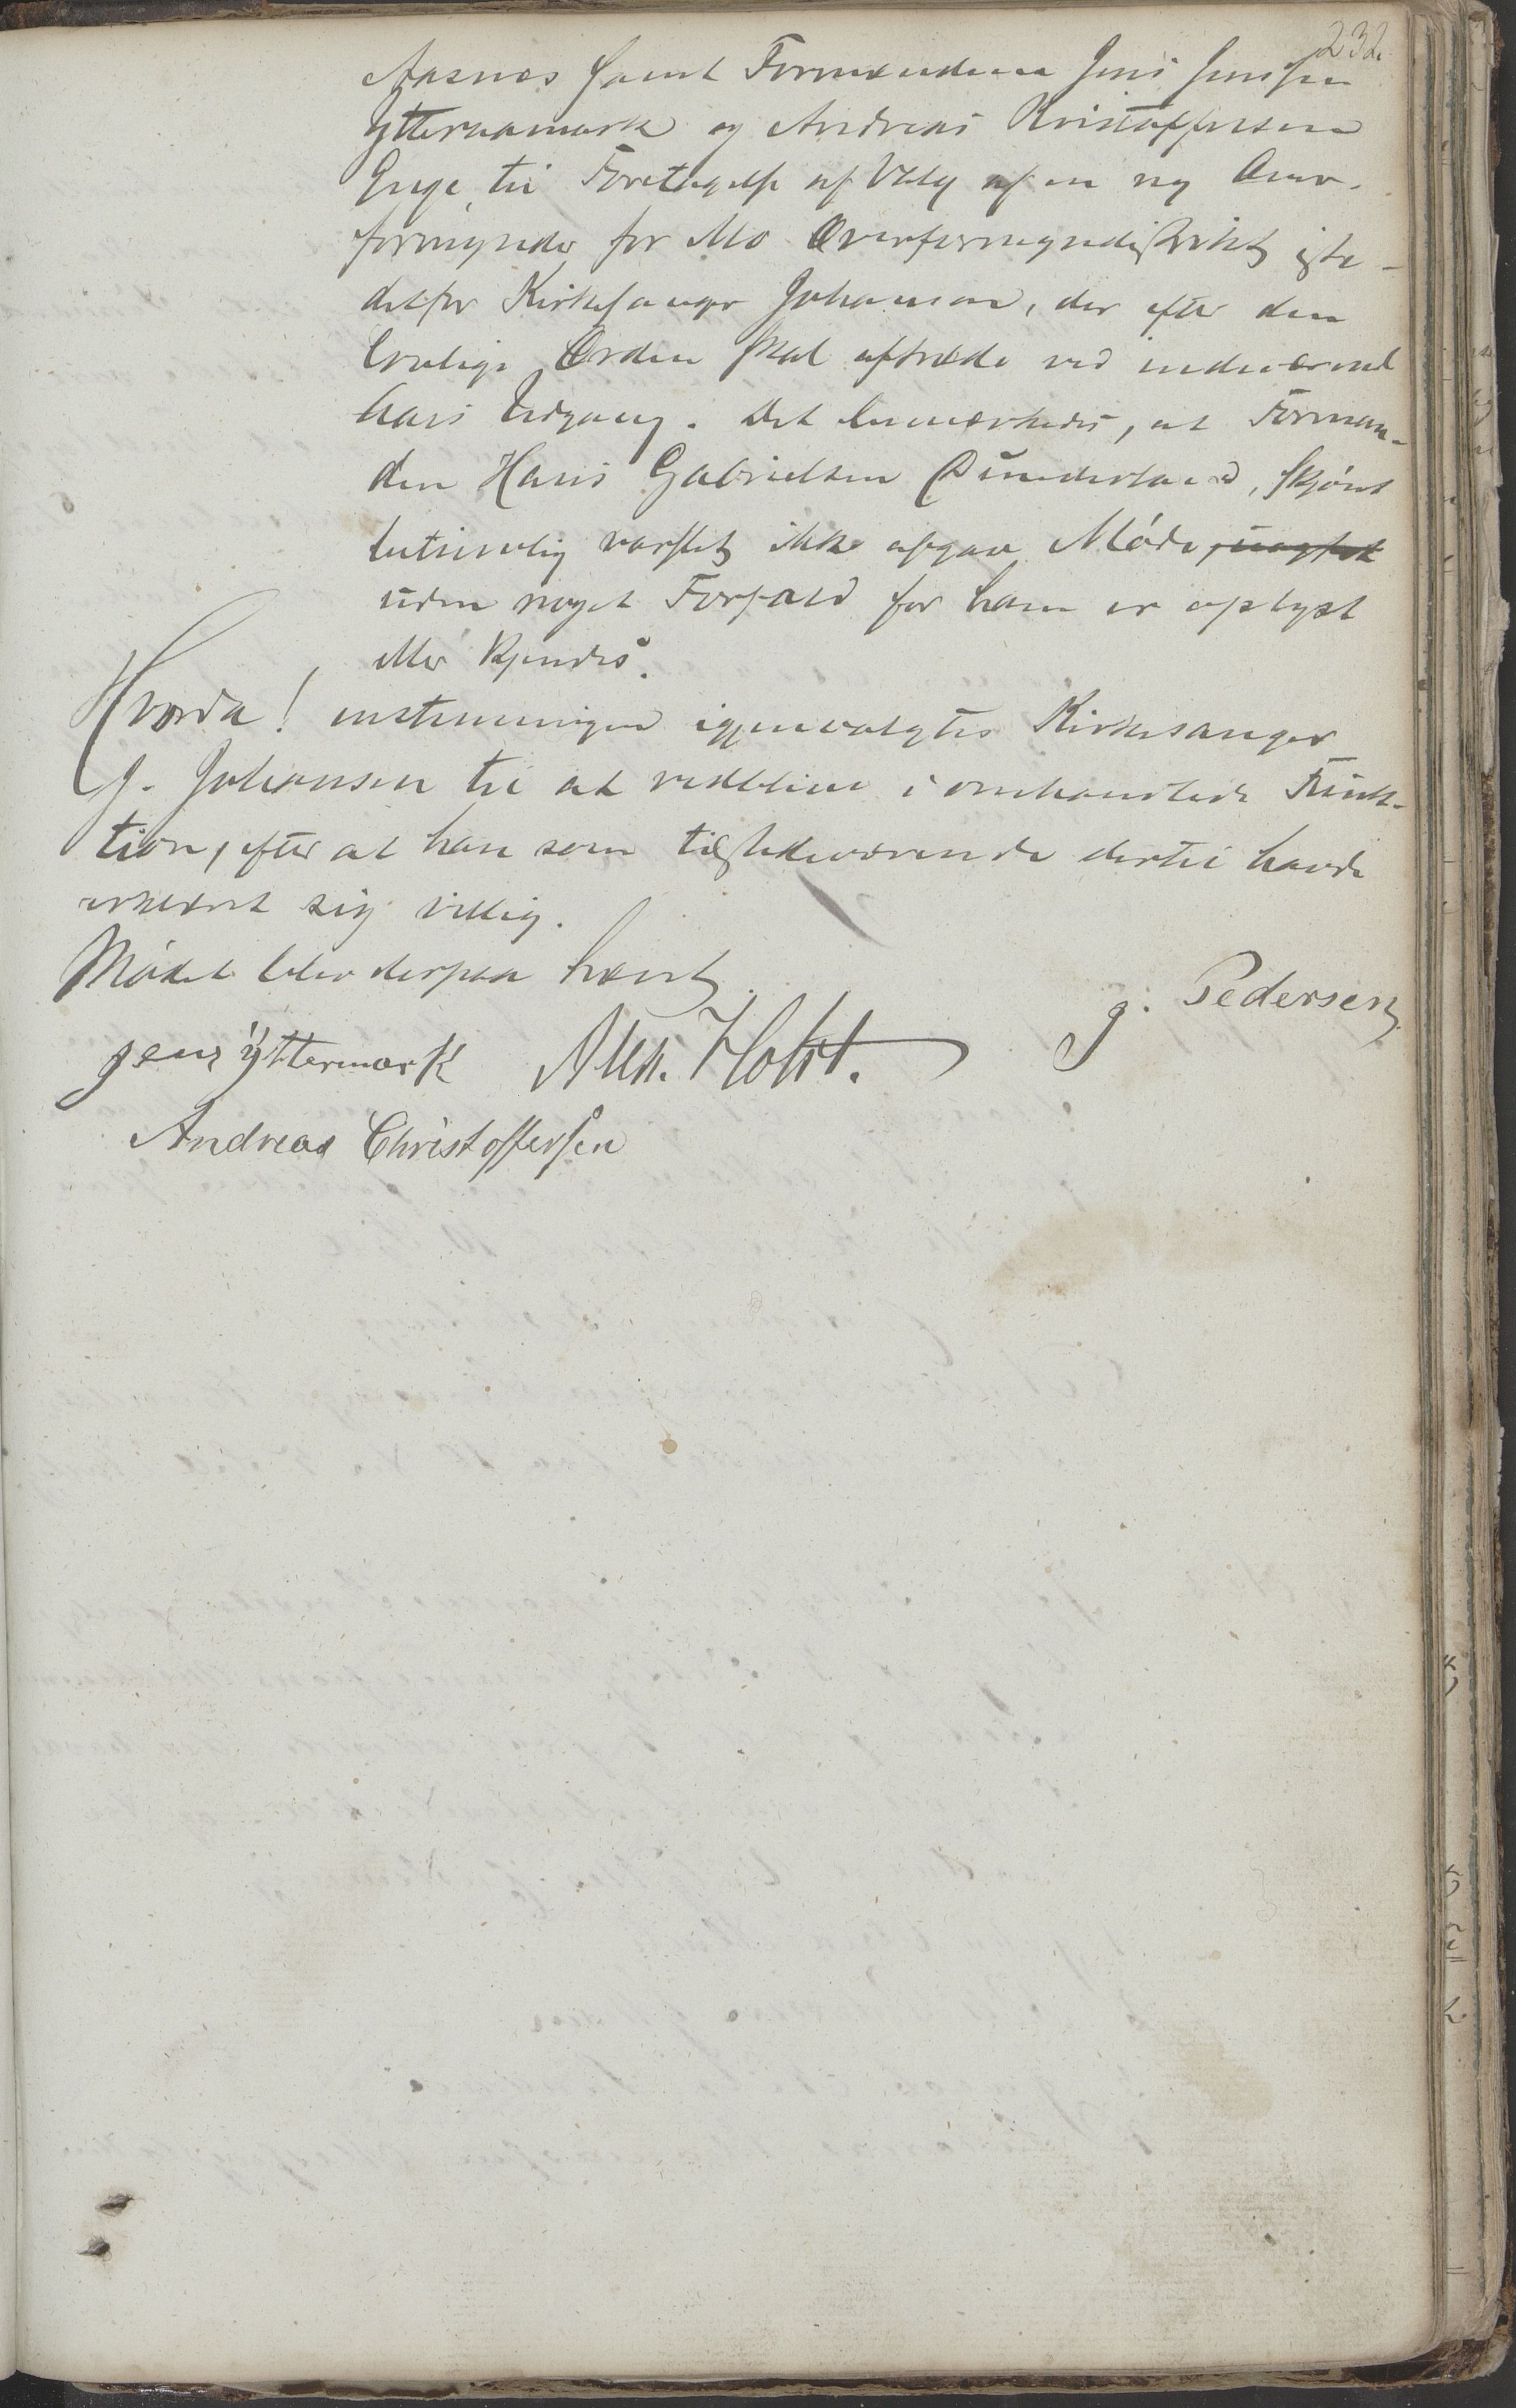 232.
Aasnes samt Formændene Jens Jensen
Ytteraamark og Andreas Kristoffersen
Enge, til Foretagelse af Valg af en ny Over-
formynder for Mo Overformynderdistrikt iste-
detfor Kirkesanger Johansen, der efter den
lovlige Orden skal aftræde ved indeværende
Aars Udgang. Det bemærkedes, at Forman-
den Hans Gabrielsen Dunderland, skjønt
betimelig varslet, ikke afgav Møde, uagtet
uden noget Forfald for ham er oplyst
eller kjendes.
Hvorda! enstemmigen igjenvalgtes Kirkesanger
J. Johansen til at vedblive i omhandlede Funk-
tion, efter at han som tilstedeværende dertil havde
erklæret sig villig.
Mødet blev derpaa hævet.
J. Pedersen
Jens Yttermark Alex. Holst.
Andreas Christoffersen